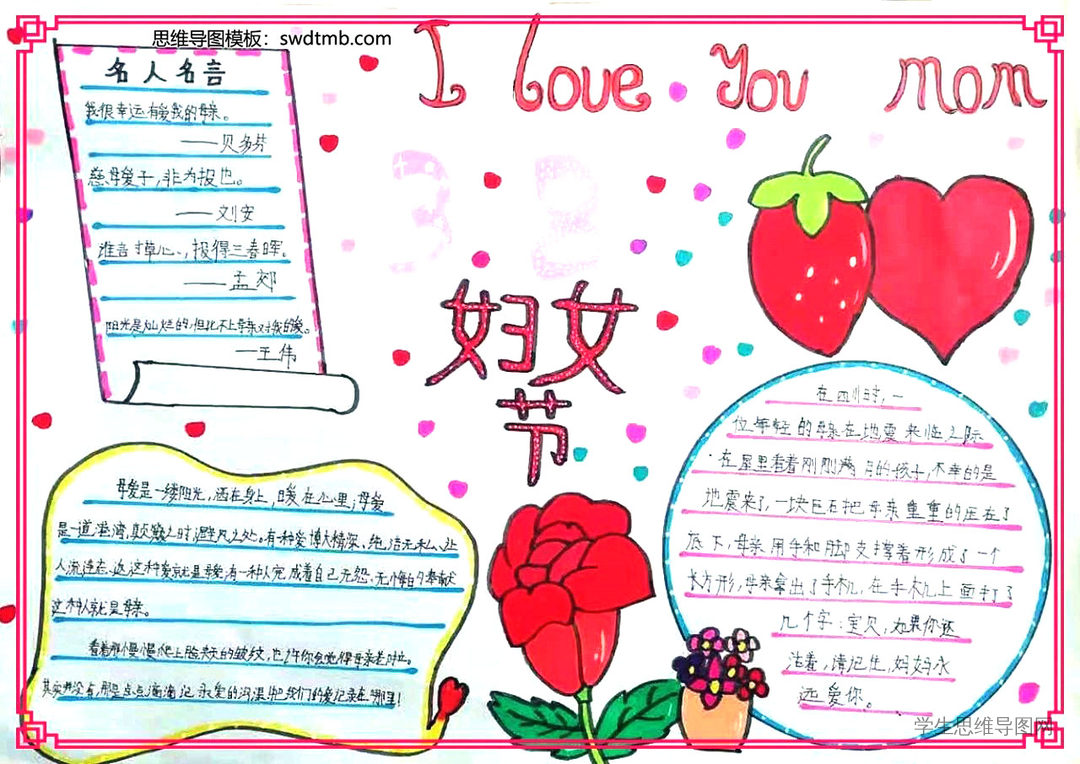 思维导图模板：swdtmb.com
I Love You mom
名人名言
我很幸运有爱我的母亲。
——贝多芬
慈母爱子，非为报也。
——刘安
谁言寸草心，报得三春晖。
——孟郊
阳光是灿烂的，但比不上母亲对我的爱。
—王伟
38
妇女
节
母爱是一缕阳光，洒在身上，暖在心里，母爱
是一道港湾，疲惫之时，避风之处。有种爱博大精深、纯洁无私、让
人流连忘返，这种爱就是母爱，有一种人完成着自己无怨、无悔的奉献
这种人就是母亲。
看着那慢慢爬上脸头的皱纹，也许你会觉得母亲老
其实没有，那是点点滴滴
永爱的沟渠把我们的爱记录在哪里！
在四川时，一
位年轻的母亲在地震来临之际
在屋里看着刚刚满月的孩子，不幸的是
地震来了，一块巨石把母亲重重的压在了
底下，母亲用手和脚支撑着形成了一个
长方形，母亲拿出了手机，在手机上面打了
几个字：宝贝，如果你还
活着，请记住，妈妈永
远爱你。
学生思维导图网